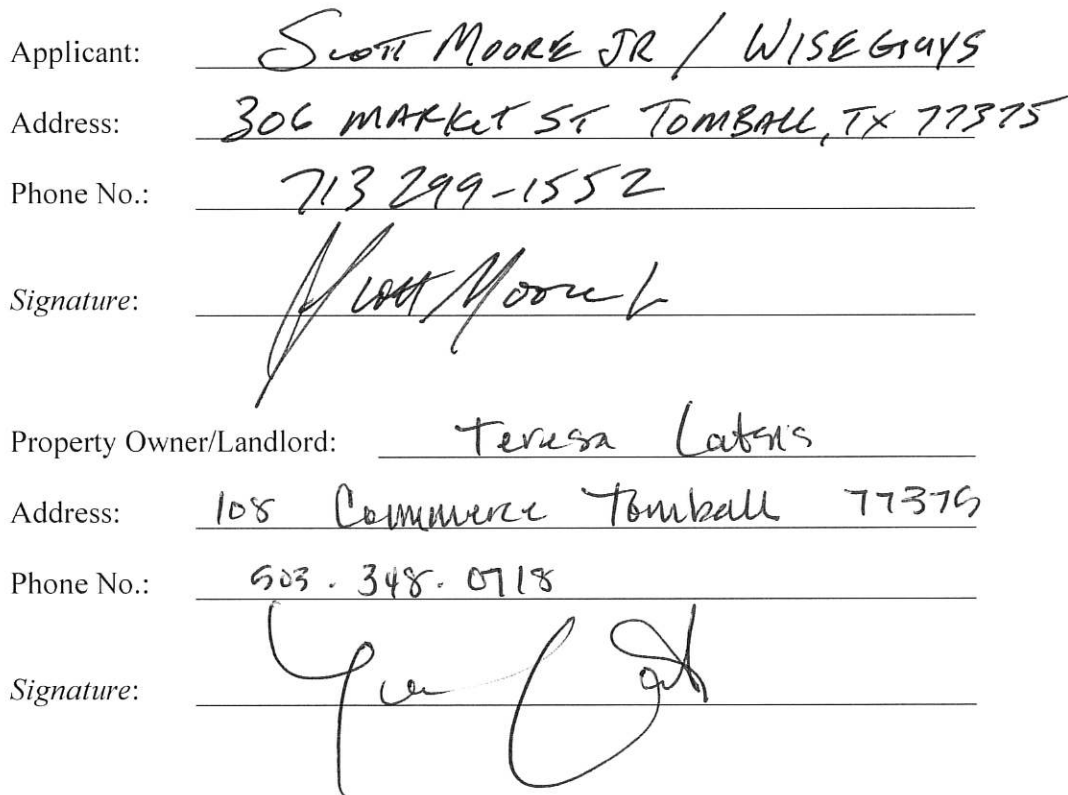 Applicant: Scott Moore JR / WISEGUYS
Address: 306 MARKET ST TOMBALL, TX 77375
Phone No.: 713 299-1552
Signature: Scott Moore Jr
Property Owner/Landlord: Teresa
Address: 108 Commerce Tomball 77375
Phone No.: 503.348.0718
Signature: